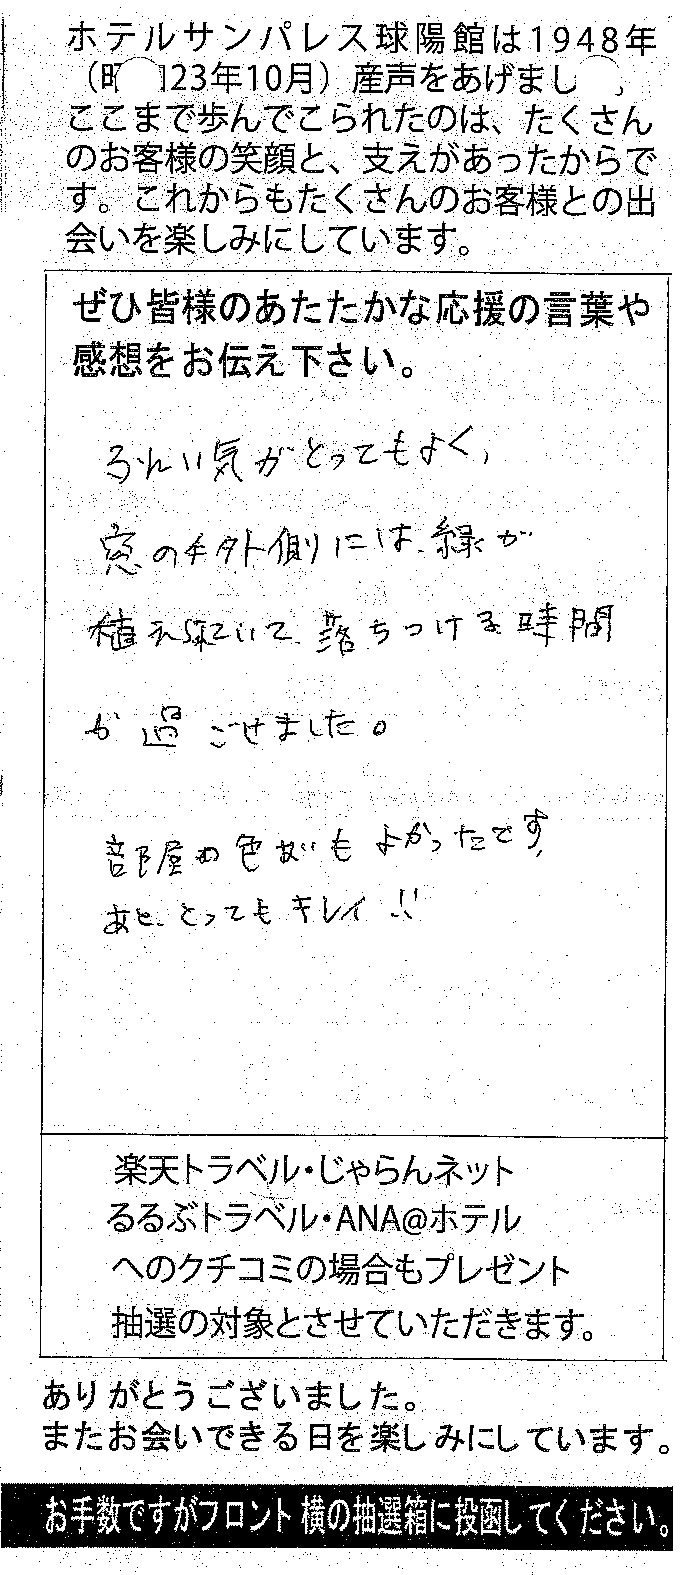 ホテルサンパレス球陽館は1948年
（昭 23年10月）産声をあげまし
ここまで歩んでこられたのは、たくさん
のお客様の笑顔と、支えがあったからで
す。これからもたくさんのお客様との出
会いを楽しみにしています。
ぜひ皆様のあたたかな応援の言葉や
感想をお伝え下さい。
ふんい気がとってもよく、
窓の外側には、緑が
植えていて、落ちつける時間
が過ごせました。
部屋の色あいもよかったです。
あと、とってもキレイ!!
楽天トラベル・じゃらんネット
るるぶトラベル・ANA@ホテル
へのクチコミの場合もプレゼント
抽選の対象とさせていただきます。
ありがとうございました。
またお会いできる日を楽しみにしています。
お手数ですがフロント横の抽選箱に投函してください。